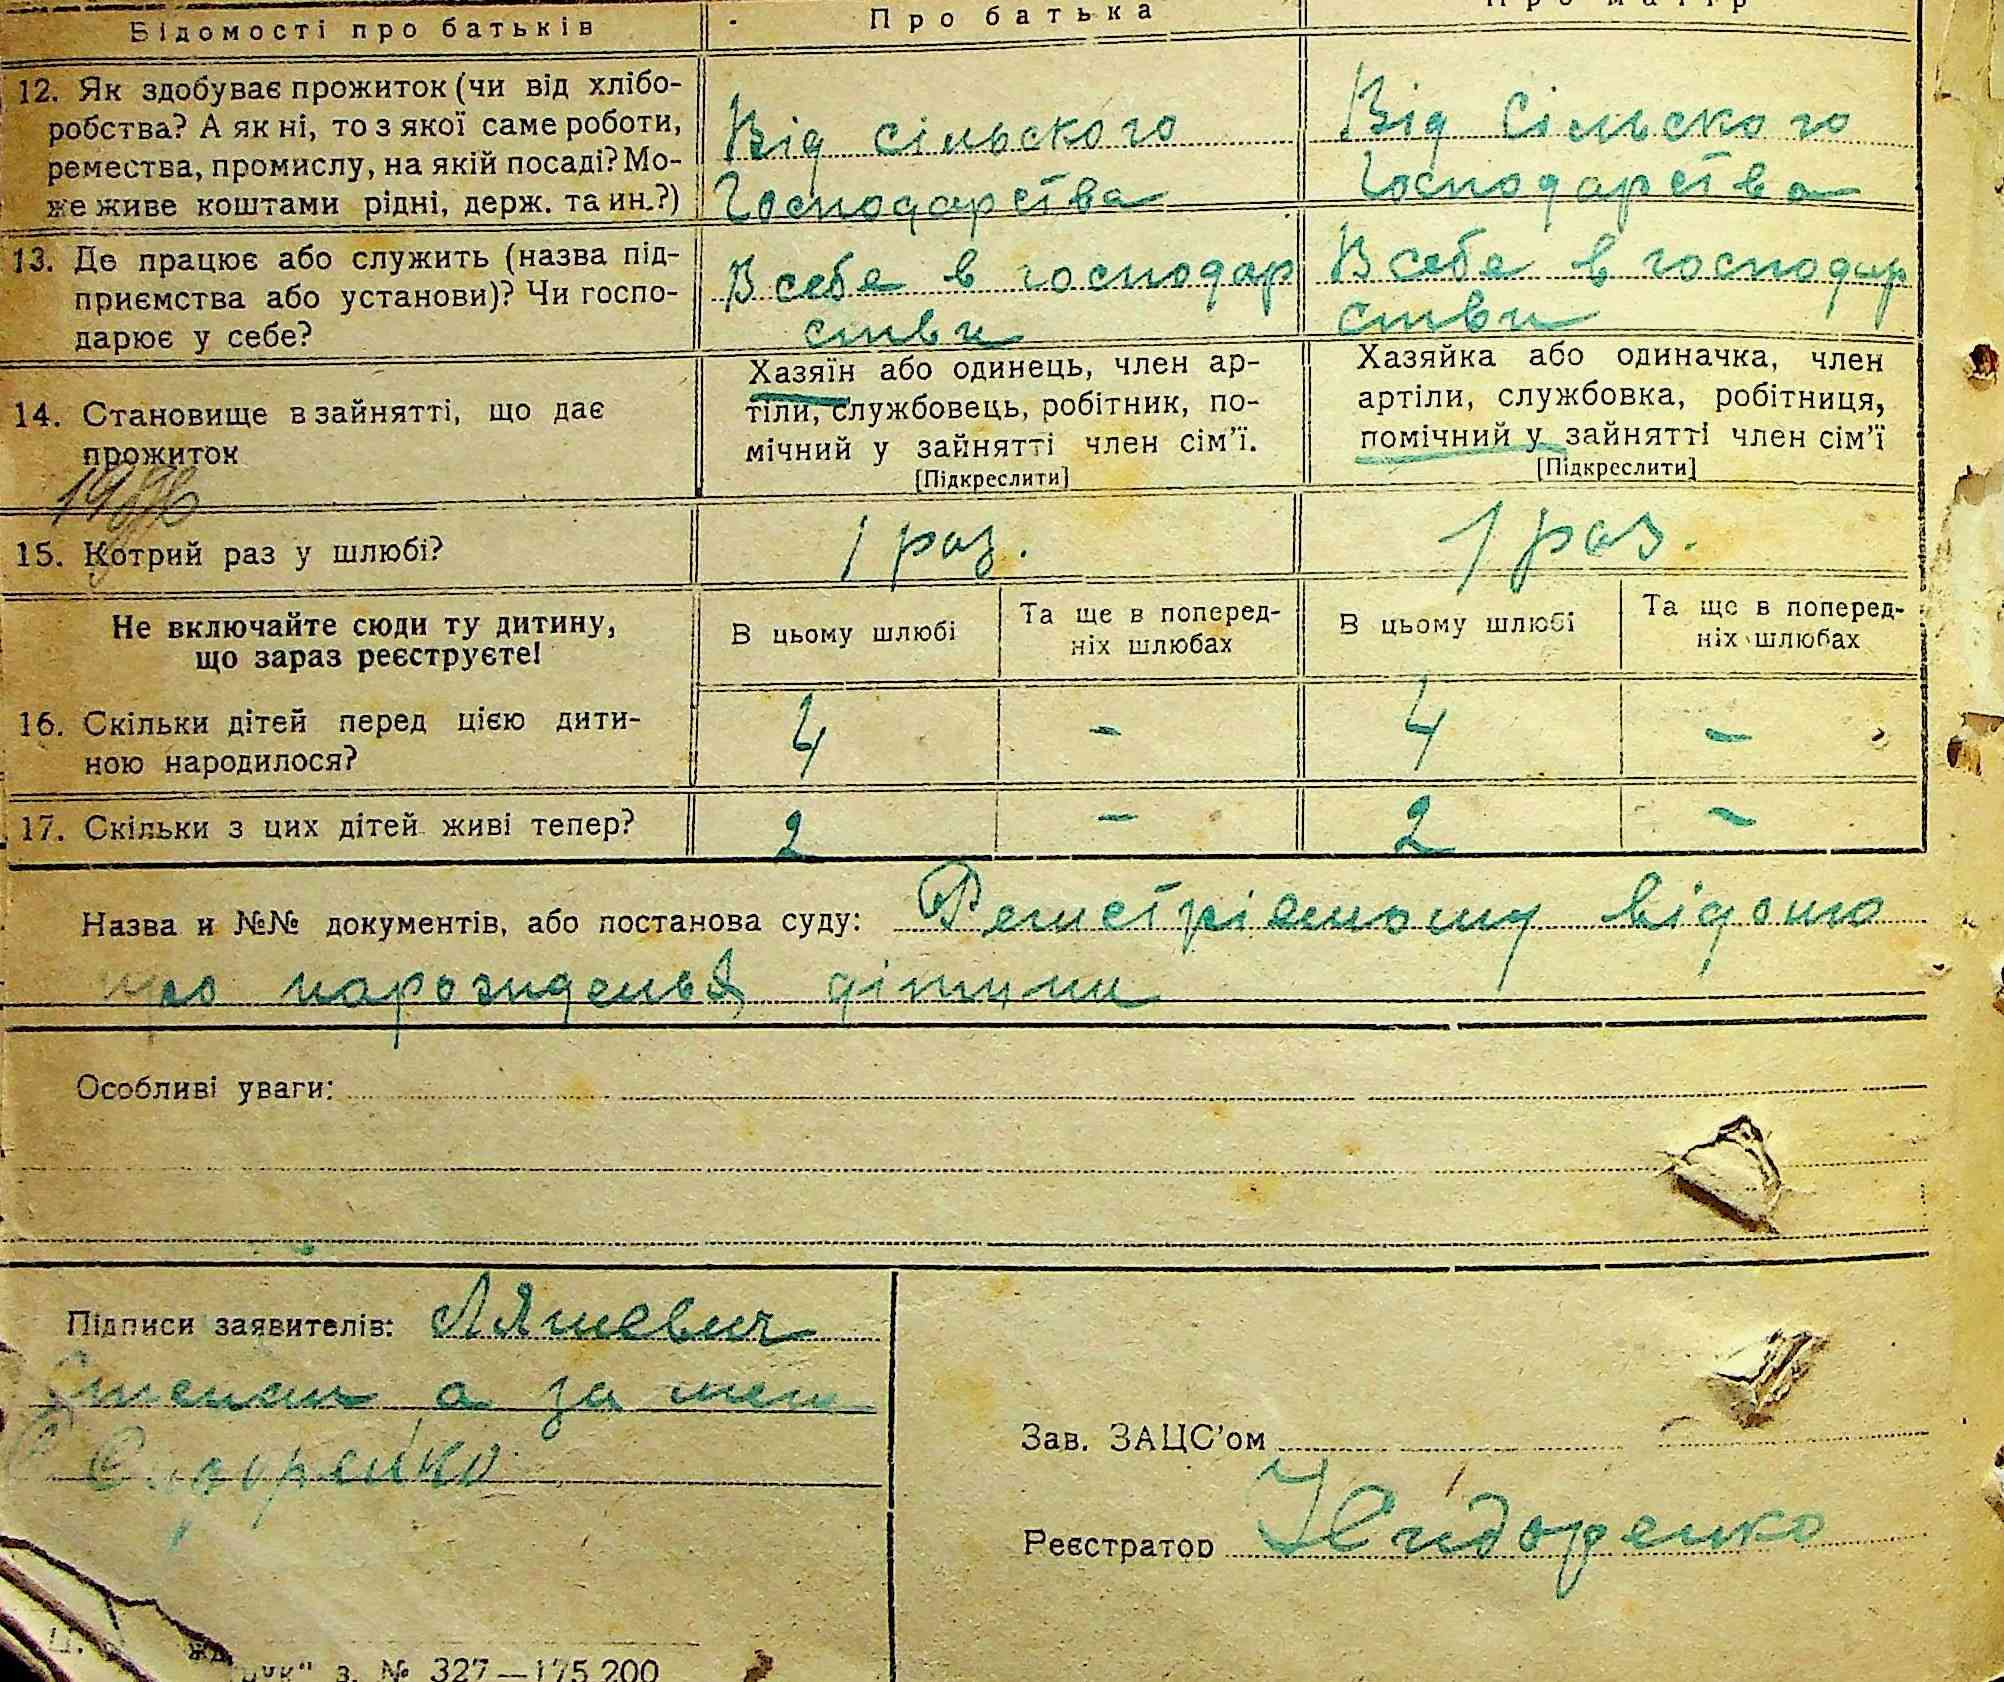 Відомості про батьків
Про батька
Про матір
12. Як здобуває прожиток (чи від хлібо-
робства? А як ні, то з якої саме роботи,
ремества, промислу, на якій посаді? Мо-
же живе коштами рідні, держ. та ин.?)
Від сільского
Господарства
Від Сільского
Господарства
13. Де працює або служить (назва під-
приємства або установи)? Чи госпо-
дарює у себе?
В себе в господар
стви
В себе в господар
стви
14. Становище в зайнятті, що дає
прожиток
Хазяїн або одинець, член ар-
тіли, службовець, робітник, по-
мічний у зайнятті член сім'ї.
[Підкреслити]
Хазяйка або одиначка, член
артіли, службовка, робітниця,
помічний у зайнятті член сім'ї
[Підкреслити]
15. Котрий раз у шлюбі?
1 раз.
1 раз.
Не включайте сюди ту дитину,
що зараз реєструєте!
В цьому шлюбі
Та ще в поперед-
ніх шлюбах
В цьому шлюбі
Та ще в поперед-
ніх шлюбах
16. Скільки дітей перед цією дити-
ною народилося?
4 - 4 -
17. Скільки з цих дітей живі тепер?
2 - 2 -
Назва и №№ документів, або постанова суду:
про дітини
Особливі уваги:
Підписи заявителів: Ляшевич
Степан а за
Сидоренко
Зав. ЗАЦС'ом
Реєстратор Сидоренко
друк" з. № 327—175.200